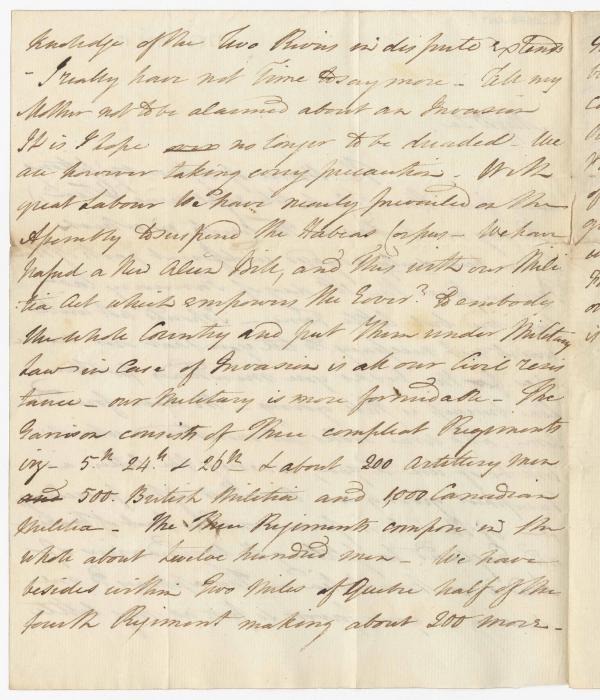 knowledge of the Two Rivers in dispute extends
- I really have not Time to say more - Tell my
Mother not to be alarmed about an Invasion
It is I hope no longer to be dreaded - We
are however taking every precaution - With
great Labour We have nearly prevailed on the
Assembly to suspend the Habeas Corpus - We have
passed a New Alien Bill, and this with our Mili
tia Act which empowers the Govr. to embody
the whole Country and put them under Military
Law in Case of Invasion is all our Civil resis
tance - our Military is more formidable - The
Garrison consists of three compleat Regiments
viz - 5th 24th & 26th & about 200 Artillery Men
and 500 British Militia and 1,000 Canadian
Militia - The three Regiments compose in the
whole about twelve hundred men - We have
besides within two Miles of Quebec half of the
fourth Regiment making about 200 more -